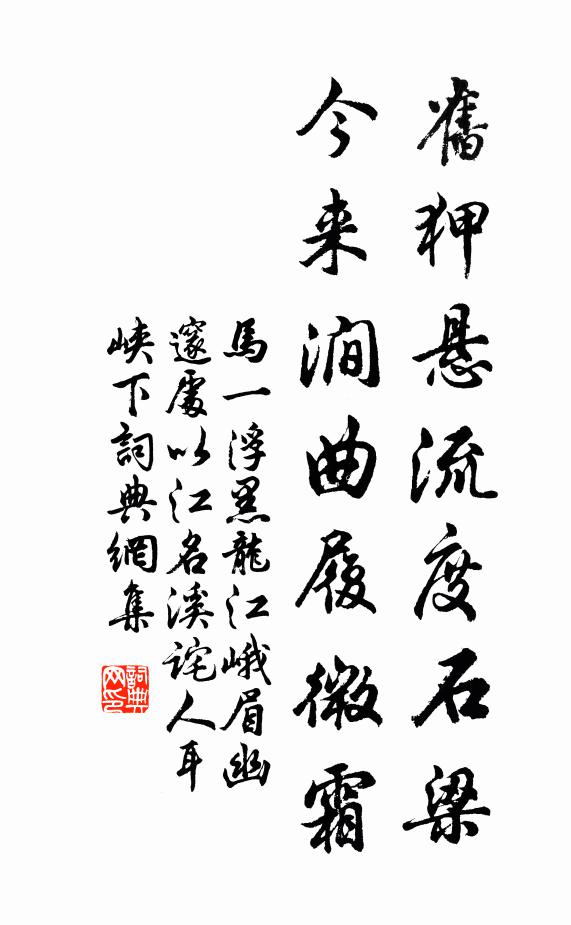 舊狎悬流度石梁
今来澗曲履微霜
馬一浮黑龍江峨眉幽
邃處以江名溪詫人耳
峽下詞典網集
詞典網印